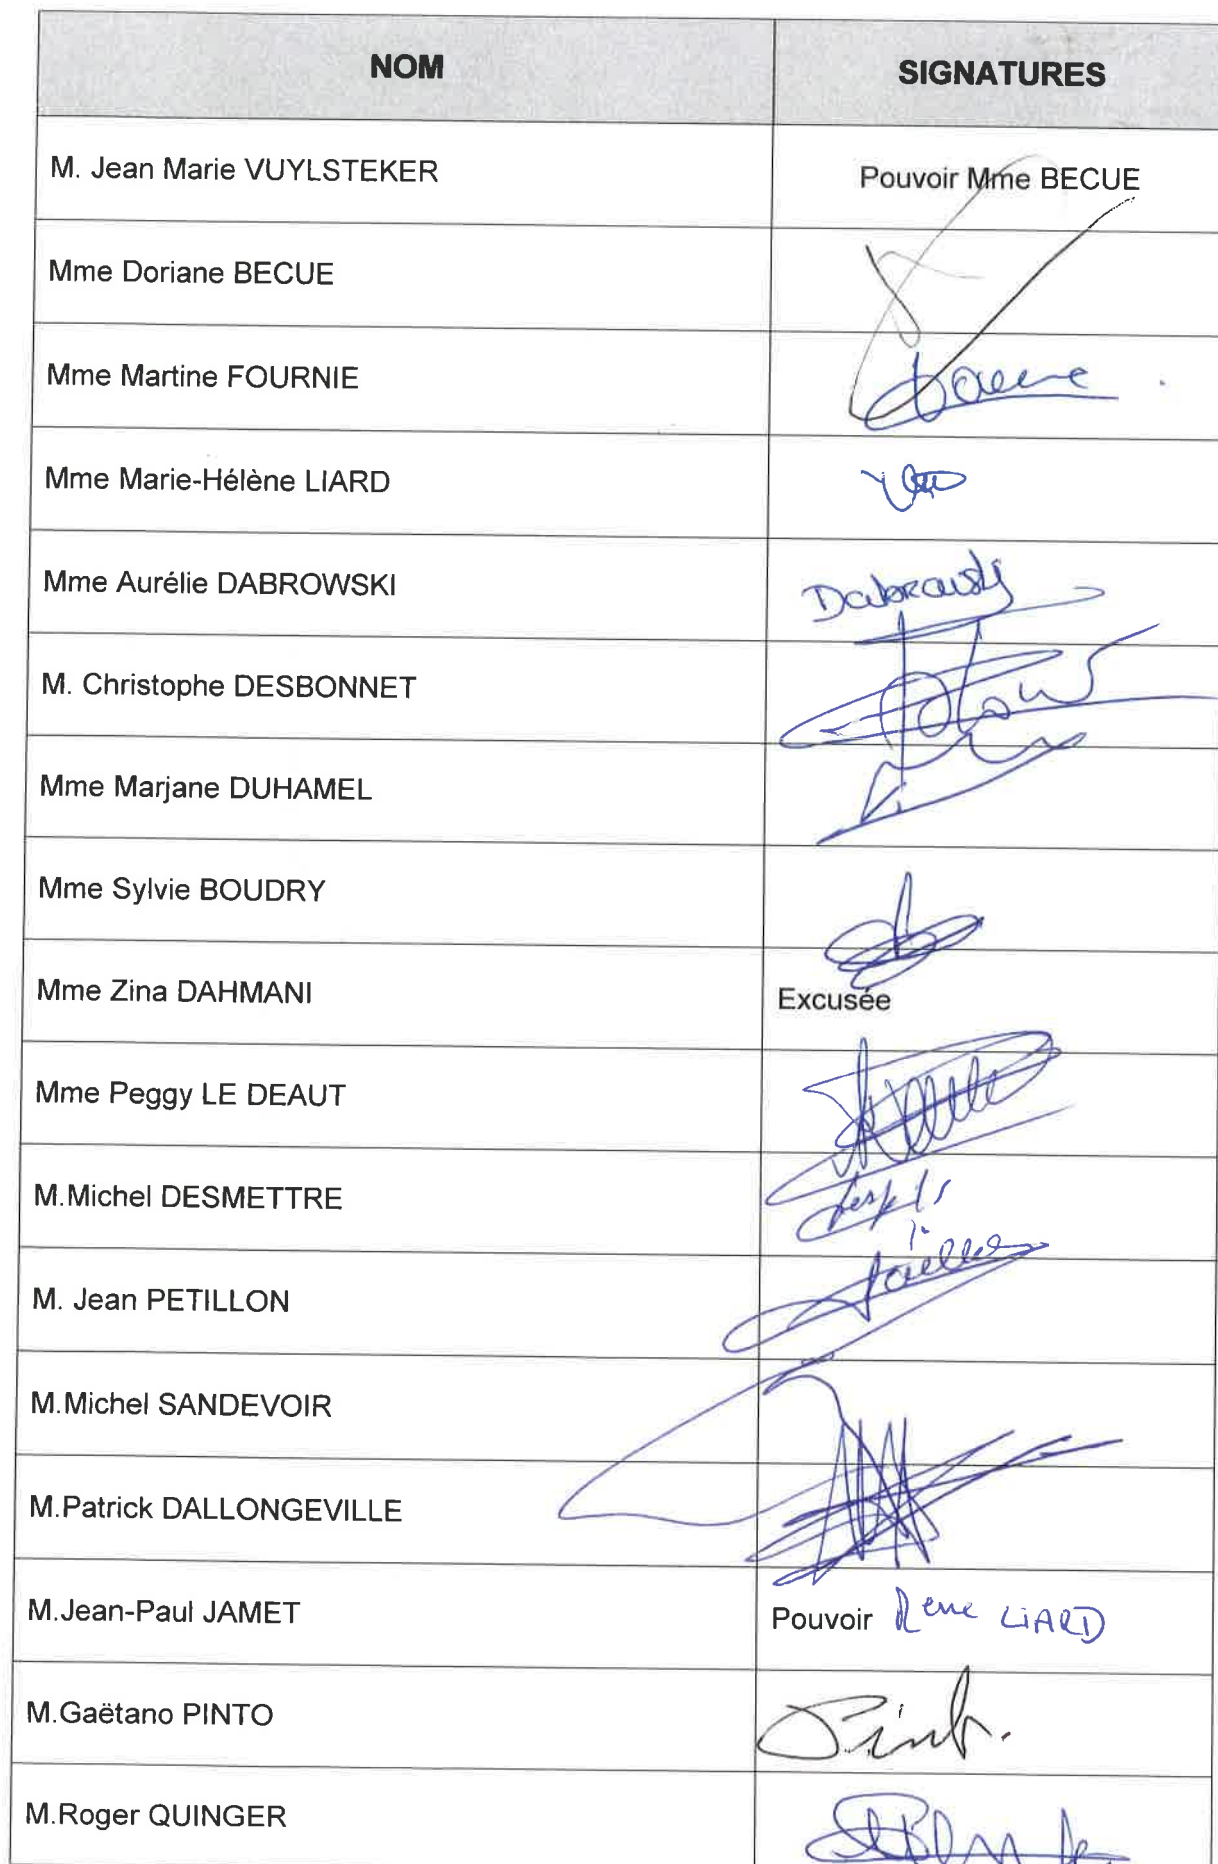 NOM SIGNATURES
M. Jean Marie VUYLSTEKER Pouvoir Mme BECUE
Mme Doriane BECUE
Mme Martine FOURNIE
Mme Marie-Hélène LIARD
Mme Aurélie DABROWSKI Dabrowski
M. Christophe DESBONNET
Mme Marjane DUHAMEL
Mme Sylvie BOUDRY
Mme Zina DAHMANI Excusée
Mme Peggy LE DEAUT
M.Michel DESMETTRE
M. Jean PETILLON
M.Michel SANDEVOIR
M.Patrick DALLONGEVILLE
M.Jean-Paul JAMET Pouvoir LIARD
M.Gaëtano PINTO Pinto
M.Roger QUINGER